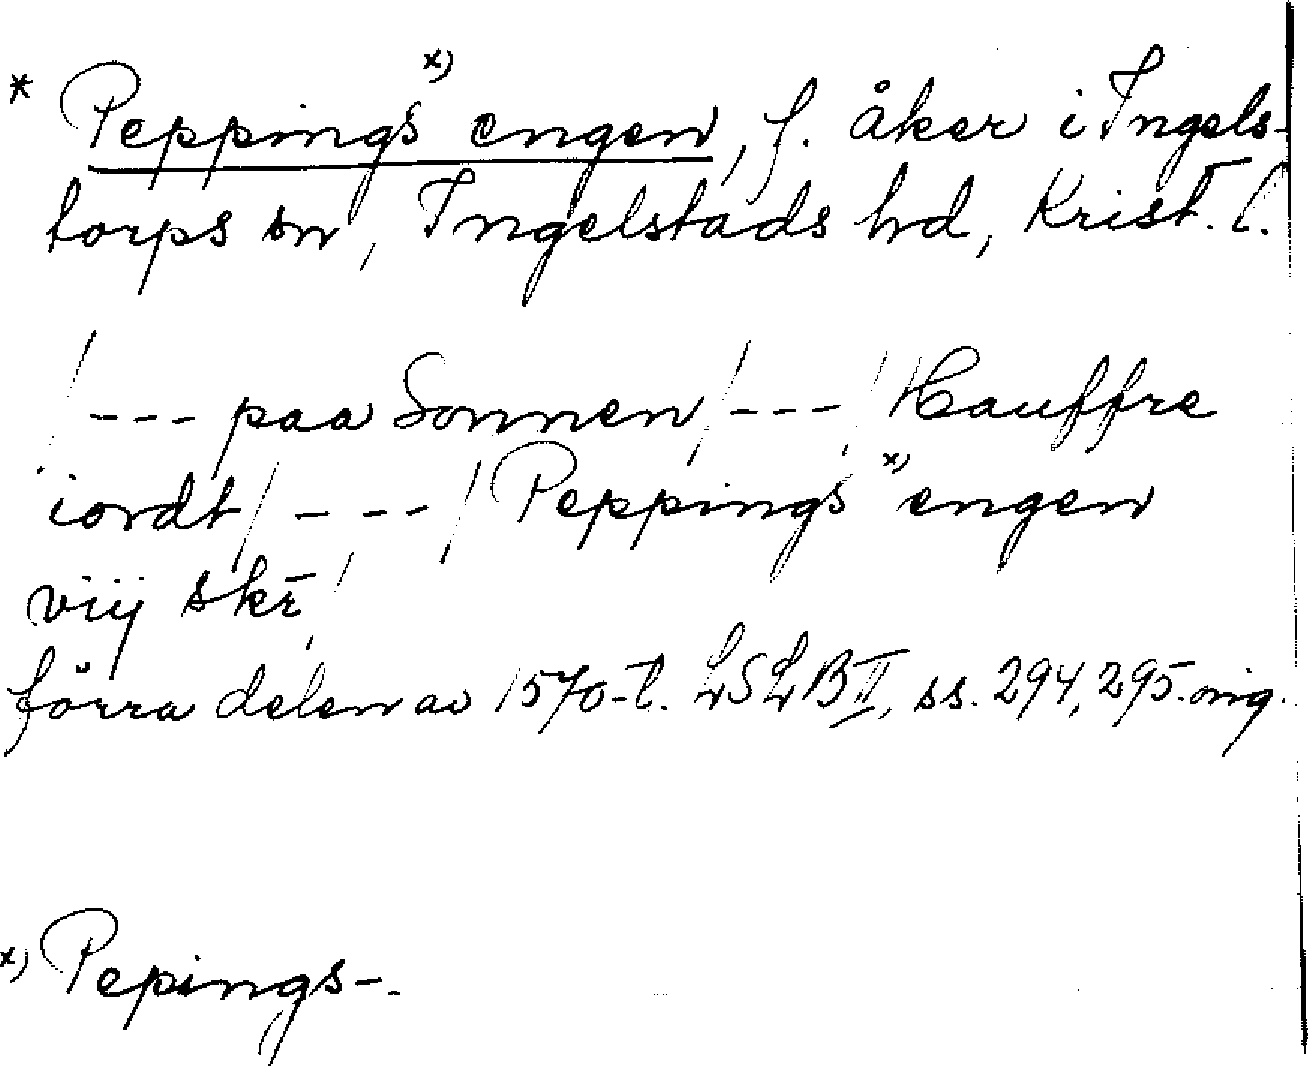 * Peppings x) engen, f. åker i Ingels-
torps sn, Ingelstads hd, Krist. l.
/--- paa Sonnen /---/ Hauffre
iordt /---/ Peppings x) engen
viij skr̄
förra delen av 1570-t. LSLB II, ss. 294, 295. orig.
x) Pepings-.